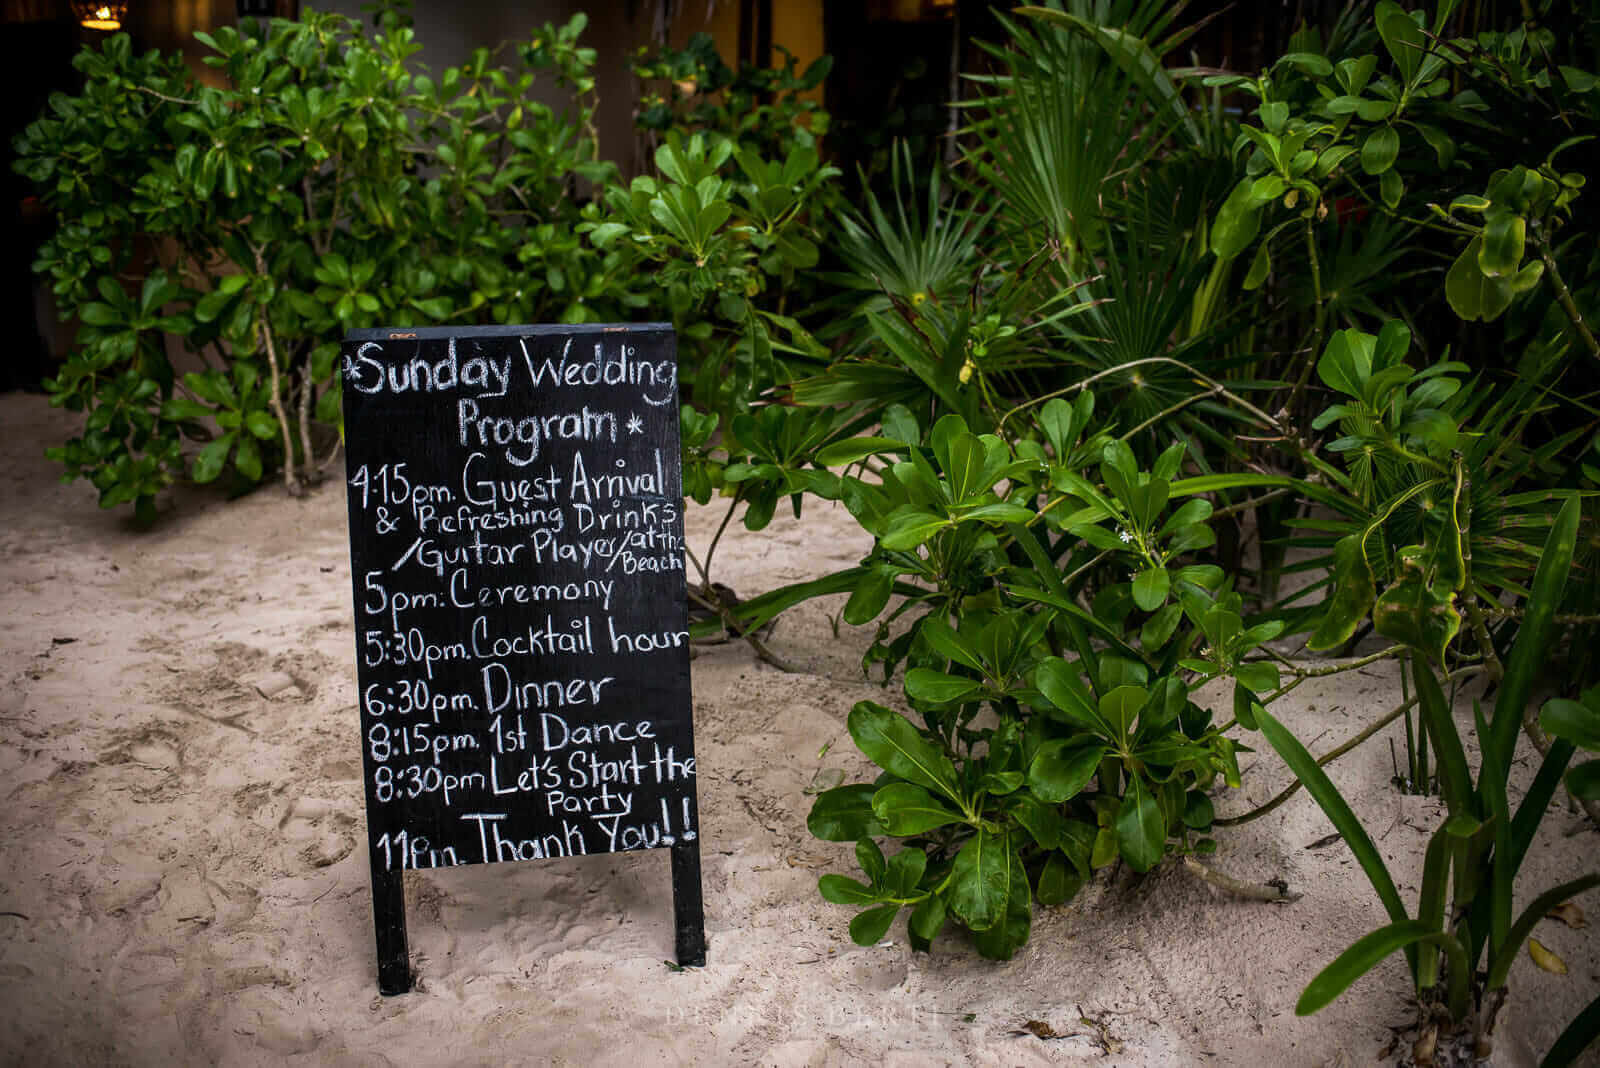 *Sunday Wedding
Program*
4:15pm. Guest Arrival
& Refreshing Drinks
/Guitar Player/at the
Beach
5pm. Ceremony
5:30pm. Cocktail hour
6:30pm. Dinner
8:15pm. 1st Dance
8:30pm Let's Start the
Party
11pm. Thank You!!
DENNIS BERTI